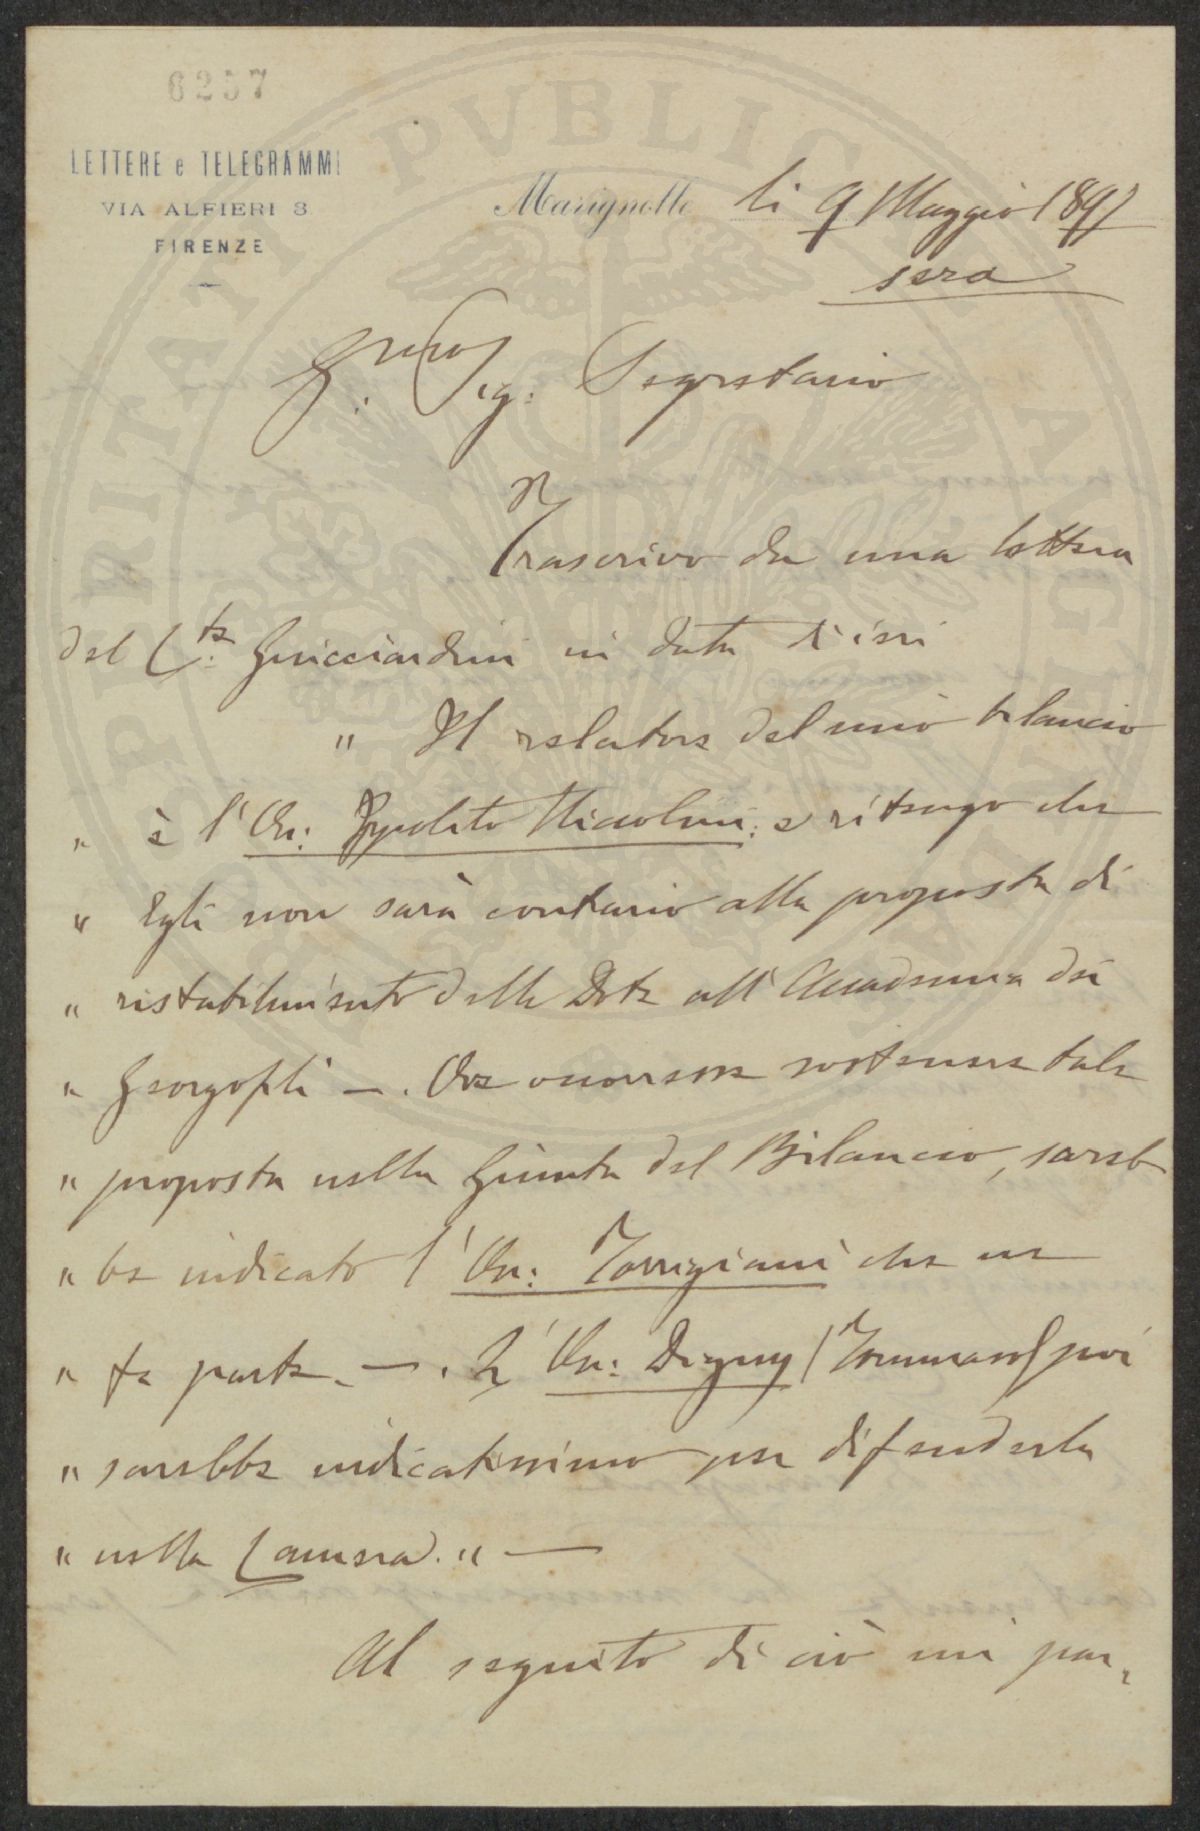 6257
LETTERE e TELEGRAMMI
VIA ALFIERI 3
FIRENZE
Marignolle li 9 Maggio 1897
sera
Sig: Segretario
Trascrivo da una lettera
del Cte Guicciardini in data di ieri
" Il relatore del mio bilancio
" è l'On: Ippolito Niccolini; e ritengo che
" Egli non sarà contrario alla proposta di
" ristabilimento della Dote all'Accademia dei
" Georgofili —. Ove occorresse sostenere tale
" proposta nella Giunta del Bilancio, sareb
" be indicato l'On: Torrigiani che ne
" fa parte. —. L'On: Digny (Tommaso) poi
" sarebbe indicatissimo per difenderla
" nella Camera. " —
Al seguito di ciò mi par,
PRITATI PVBLICAE AVGENDAE